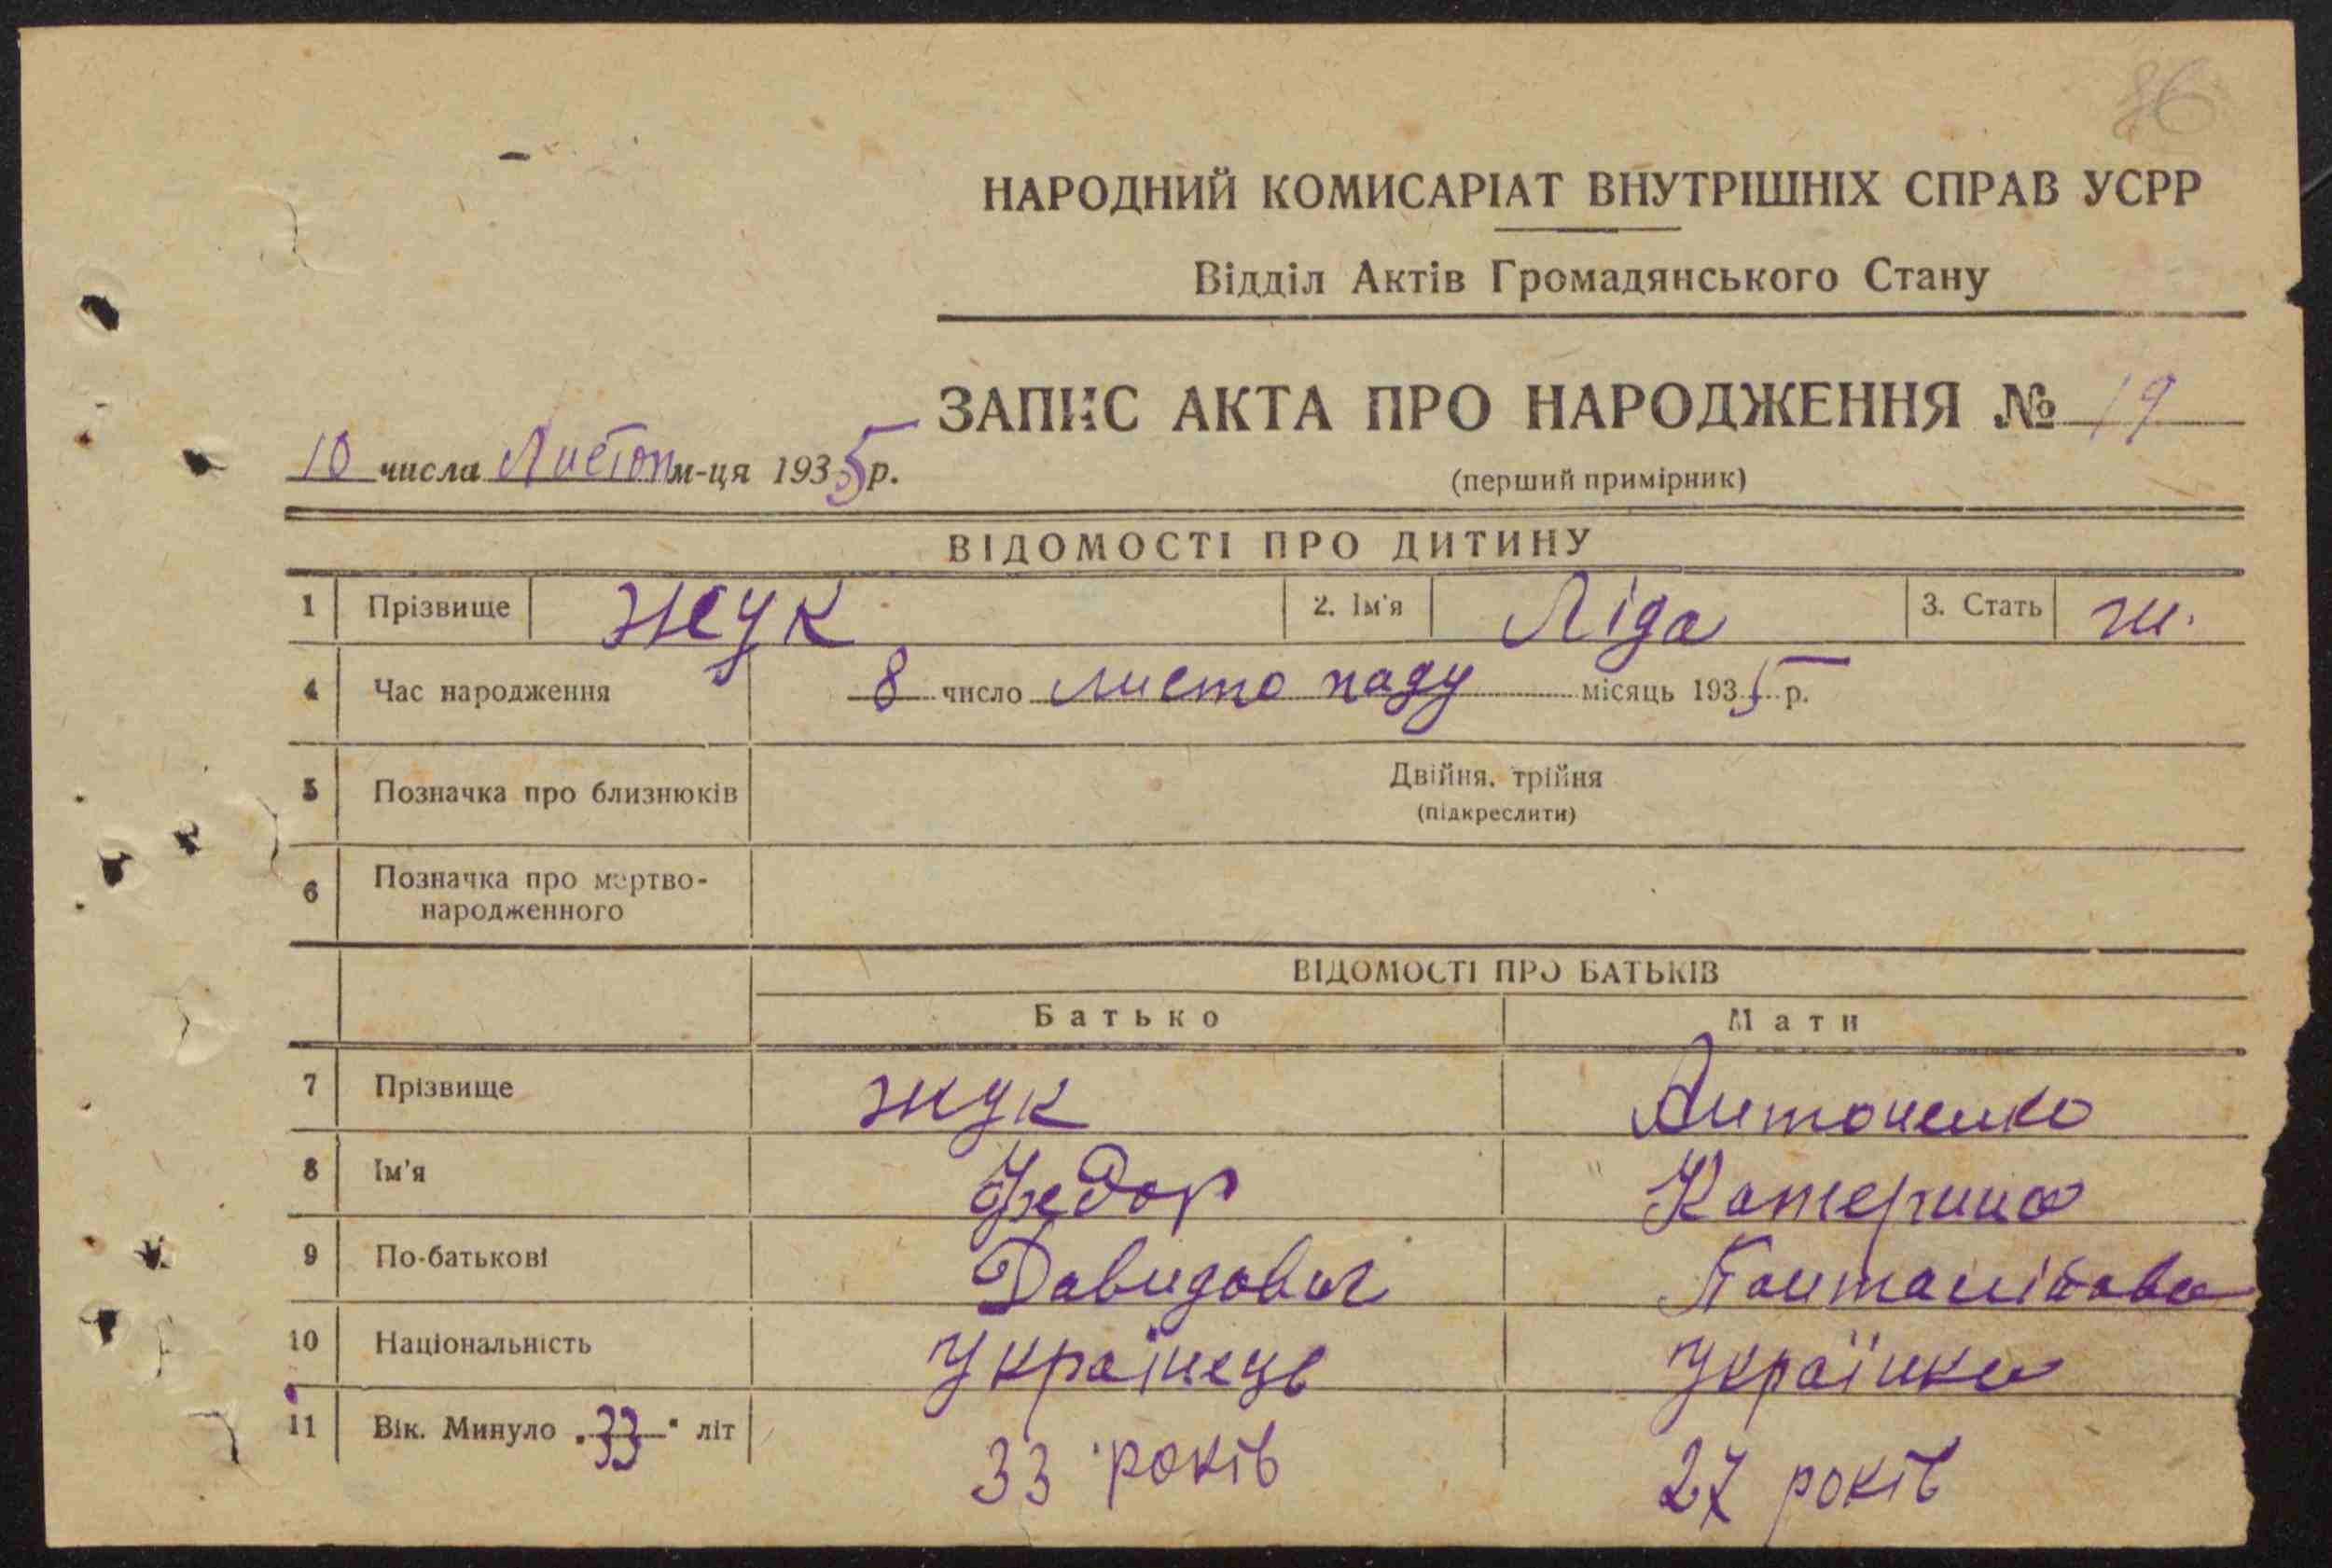 86
НАРОДНИЙ КОМИСАРІАТ ВНУТРІШНІХ СПРАВ УСРР
Відділ Актів Громадянського Стану
ЗАПИС АКТА ПРО НАРОДЖЕННЯ № 19
10 числа Листоп м-ця 1935 р.
(перший примірник)
ВІДОМОСТІ ПРО ДИТИНУ
1 Прізвище Жук 2. Ім'я Ліда 3. Стать ж.
4 Час народження 8 число листопаду місяць 1935 р.
5 Позначка про близнюків Двійня, трійня
(підкреслити)
6 Позначка про мертво-
народженного
ВІДОМОСТІ ПРО БАТЬКІВ
Батько Мати
7 Прізвище Жук Антоненко
8 Ім'я Федор Катерина
9 По-батькові Давидович
10 Національність Українець Українка
11 Вік. Минуло „33" літ 33 років 27 років